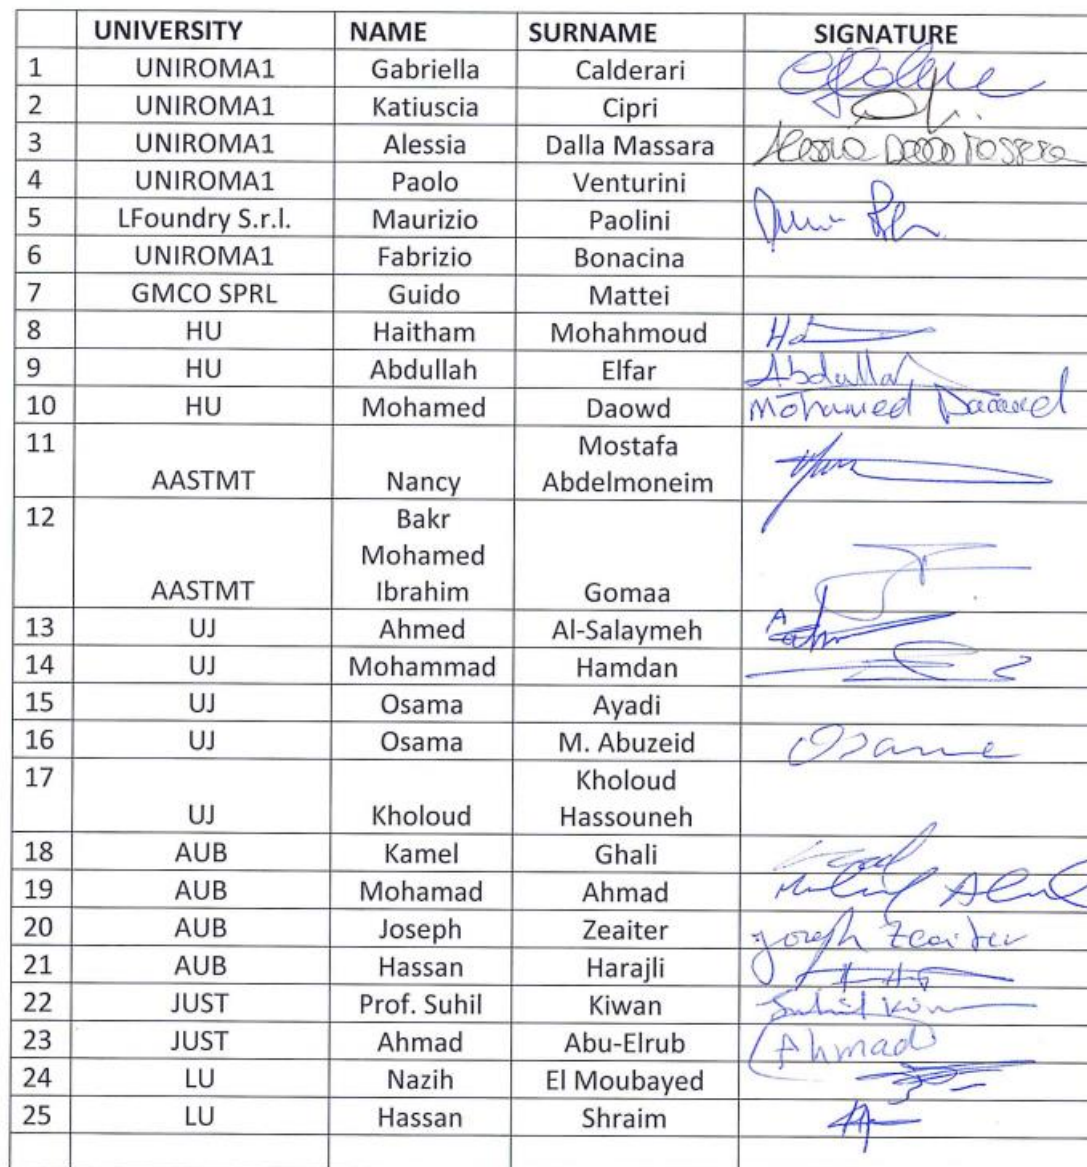 UNIVERSITY NAME SURNAME SIGNATURE
1 UNIROMA1 Gabriella Calderari
2 UNIROMA1 Katiuscia Cipri
3 UNIROMA1 Alessia Dalla Massara Alessia Dalla Massara
4 UNIROMA1 Paolo Venturini
5 LFoundry S.r.l. Maurizio Paolini
6 UNIROMA1 Fabrizio Bonacina
7 GMCO SPRL Guido Mattei
8 HU Haitham Mohahmoud
9 HU Abdullah Elfar Abdullah
10 HU Mohamed Daowd Mohamed Daowd
11 Mostafa
AASTMT Nancy Abdelmoneim
12 Bakr
Mohamed
AASTMT Ibrahim Gomaa
13 UJ Ahmed Al-Salaymeh
14 UJ Mohammad Hamdan
15 UJ Osama Ayadi
16 UJ Osama M. Abuzeid Osama
17 Kholoud
UJ Kholoud Hassouneh
18 AUB Kamel Ghali
19 AUB Mohamad Ahmad
20 AUB Joseph Zeaiter Joseph Zeaiter
21 AUB Hassan Harajli
22 JUST Prof. Suhil Kiwan Suhil Kiwan
23 JUST Ahmad Abu-Elrub Ahmad
24 LU Nazih El Moubayed
25 LU Hassan Shraim